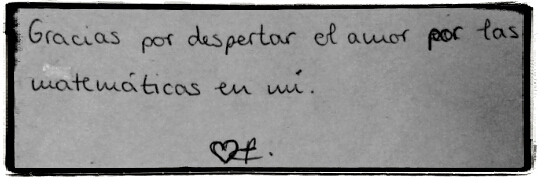 Gracias por despertar el amor por las
matemáticas en mí.
♡f.